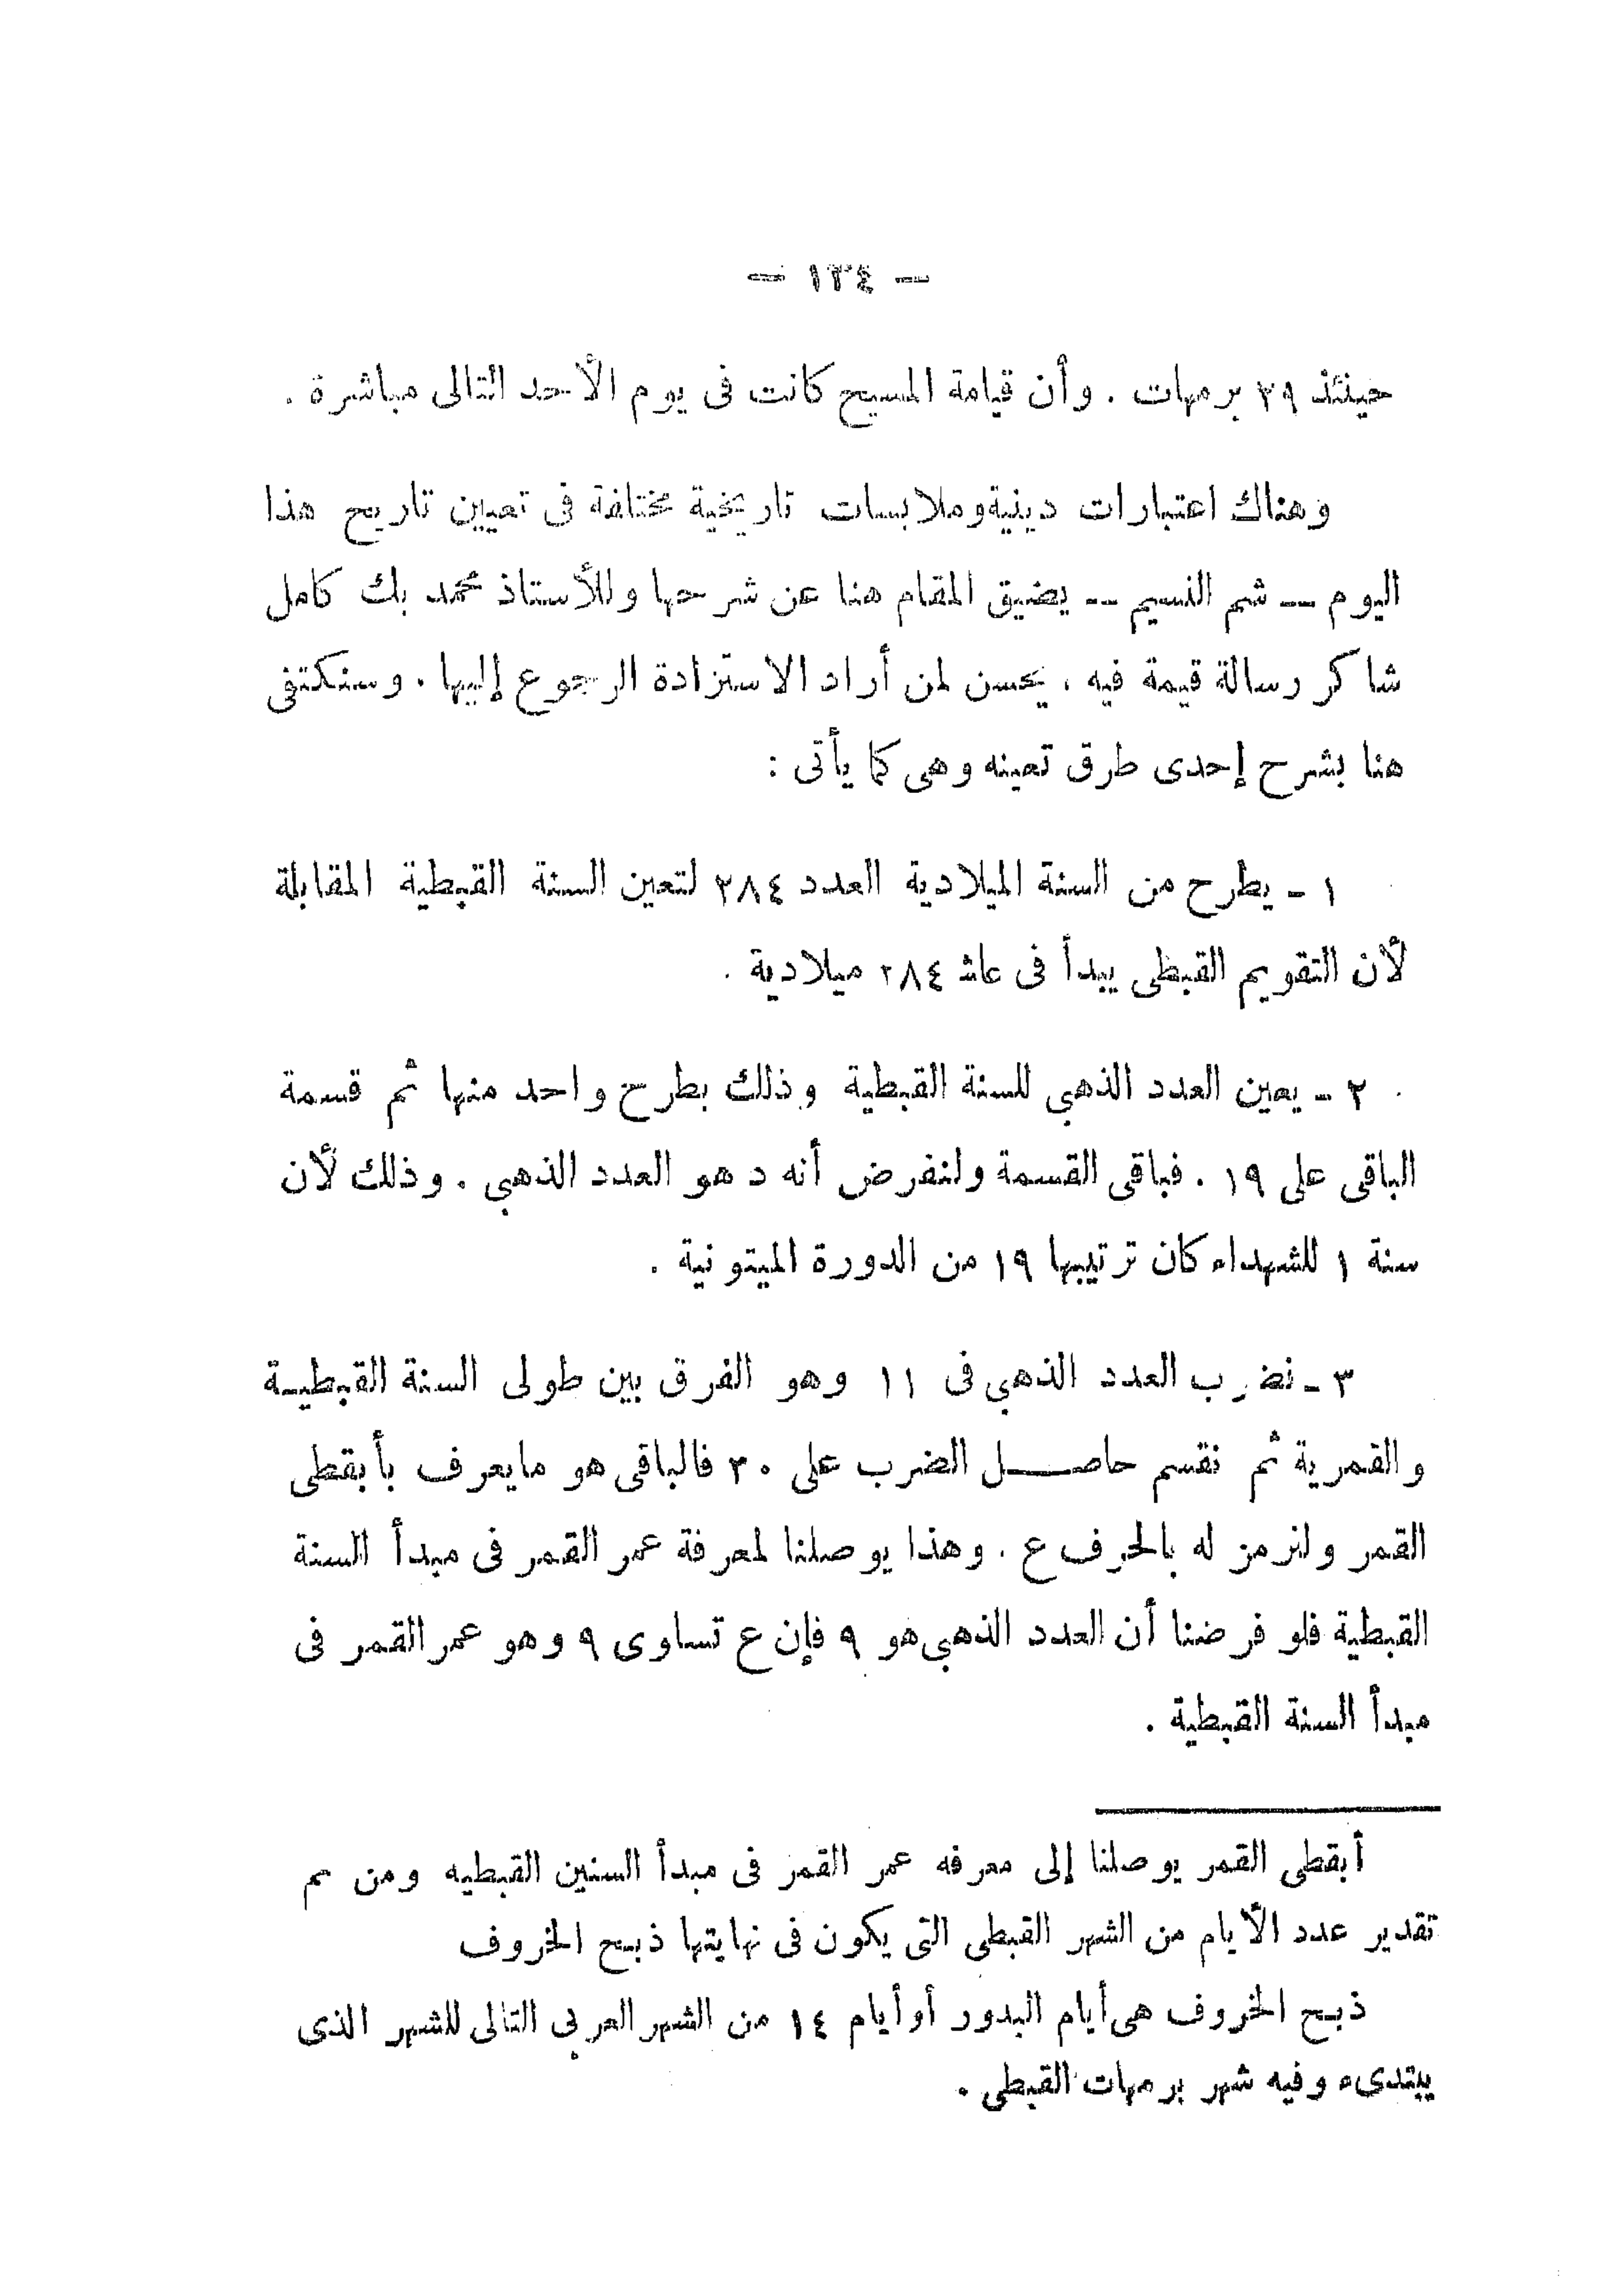 — ١٣٤ —
حينئذ ٢٩ برمهات . وأن قيامة المسيح كانت فى يوم الأحد التالى مباشرة .
وهناك اعتبارات دينية وملابسات تاريخية مختلفة فى تعيين تاريح هذا
اليوم — شم النسيم — يضيق المقام هنا عن شرحها وللأستاذ محمد بك كامل
شاكر رسالة قيمة فيه ، يحسن لمن أراد الاستزادة الرجوع إليها . وسنكتفى
هنا بشرح إحدى طرق تعينه وهى كما يأتى :
١ - يطرح من السنة الميلادية العدد ٢٨٤ لتعين السنة القبطية المقابلة
لأن التقويم القبطى يبدأ فى عام ٢٨٤ ميلادية .
٢ - يعين العدد الذهبى للسنة القبطية وذلك بطرح واحد منها ثم قسمة
الباقى على ١٩ . فباقى القسمة ولنفرض أنه د هو العدد الذهبى . وذلك لأن
سنة ١ للشهداء كان ترتيبها ١٩ من الدورة الميتونية .
٣ - نضرب العدد الذهبى فى ١١ وهو الفرق بين طولى السنة القبطيـة
والقمرية ثم نقسم حاصـــل الضرب على ٣٠ فالباقى هو مايعرف بأبقطى
القمر ولنرمز له بالحرف ع . وهذا يوصلنا لمعرفة عمر القمر فى مبدأ السنة
القبطية فلو فرضنا أن العدد الذهبى هو ٩ فإن ع تساوى ٩ وهو عمر القمر فى
مبدأ السنة القبطية .
أبقطى القمر يوصلنا إلى معرفه عمر القمر فى مبدأ السنين القبطيه ومن ثم
تقدير عدد الأيام من الشهر القبطى التى يكون فى نهايتها ذبح الخروف
ذبح الخروف هى أيام البدور أو أيام ١٤ من الشهر العربى التالى للشهر الذى
يبتدىء وفيه شهر برمهات القبطى .